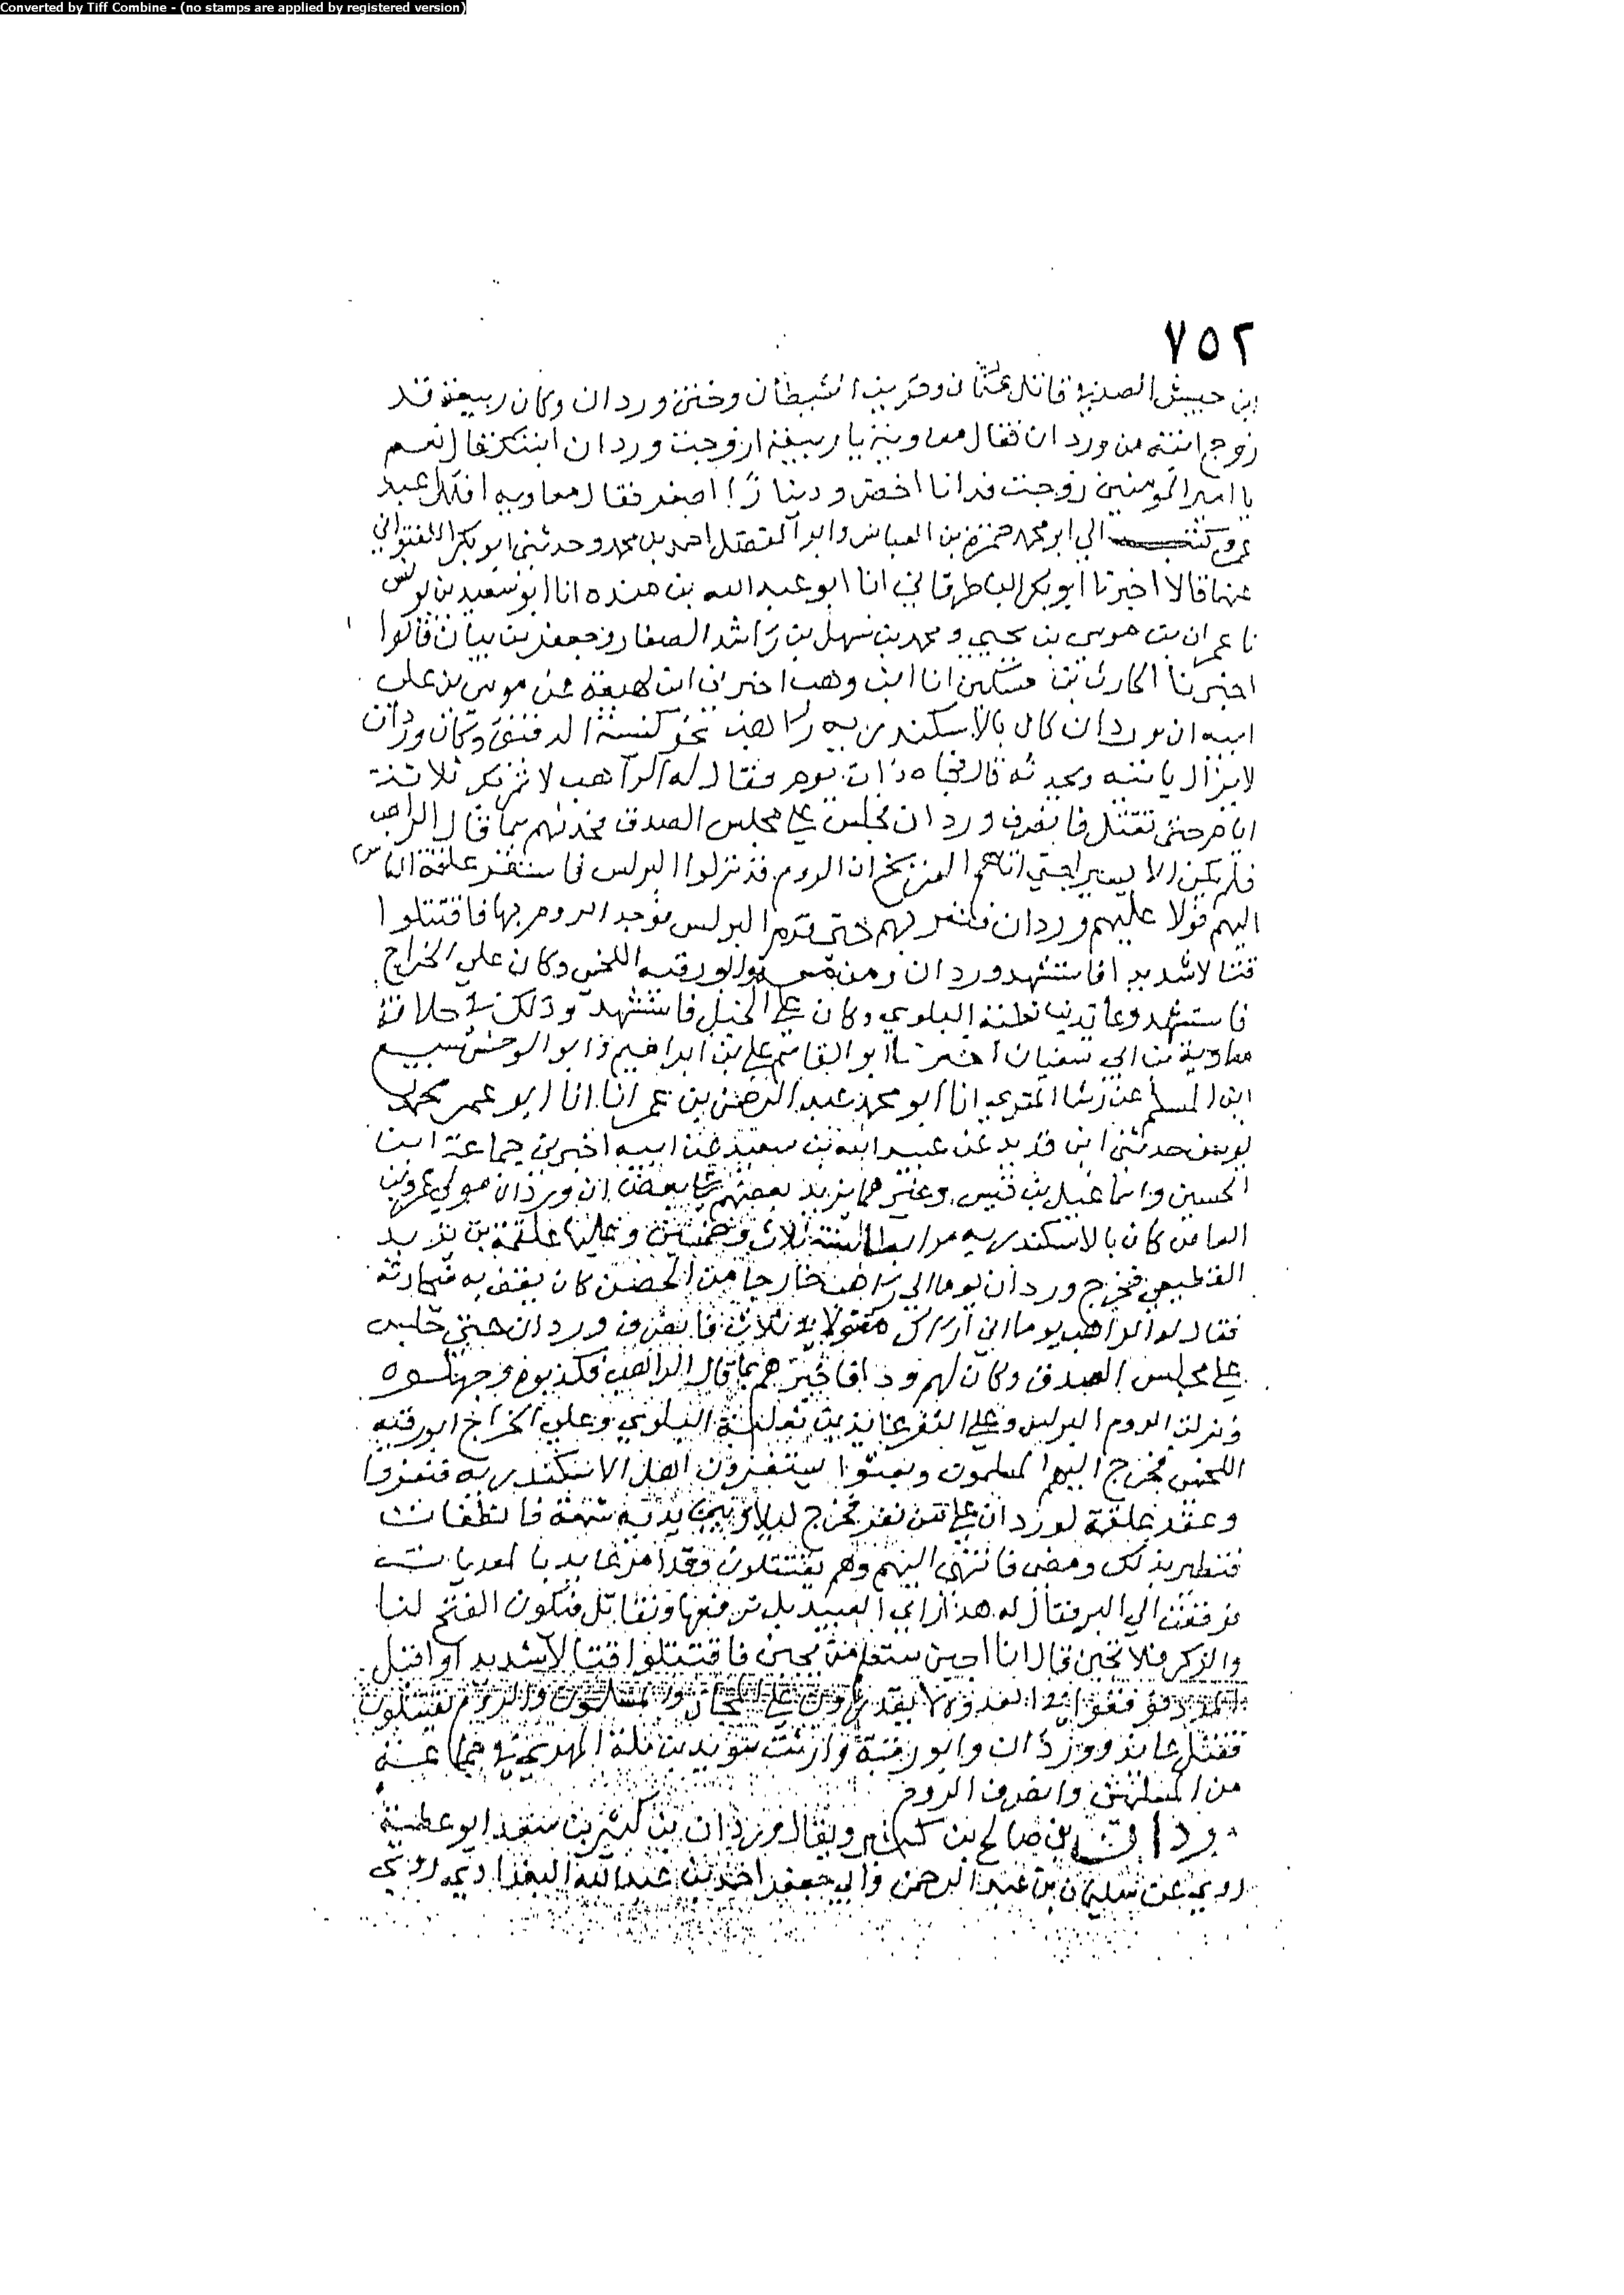 Converted by Tiff Combine - (no stamps are applied by registered version)
٧٥٢
ابن حبيش الصدفي قاتل عثمان وقرين الشيطان وختن وردان وكان ربيعة قد
زوج ابنته من وردان فقال معاوية يا ربيعة ازوجت وردان ابنتك فقال نعم
يا امير المومنين زوجت فدانا اخضر ودينارا اصفر فقال معاويه افتلك عبد
عمرو كتب الي ابو محمد حمزة بن العباس وابو الفضل احمد بن محمد وحدثني ابو بكر اللفتواني
عنهما قالا اخبرنا ابو بكر الباطرقاني انا ابو عبد الله بن منده انا ابو سعيد بن يونس
نا عمران بن موسى بن يحيى ومحمد بن سهل بن راشد الصفار وجعفر بن بيان قالوا
اخبرنا الحارث بن مسكين انا ابن وهب اخبرني ابن لهيعة عن موسى بن علي
ابيه ان وردان كان بالاسكندريه راهب نحو كنيسة وكان وردان
لا يزال ياتيه ويحدثه قال فجاه ذات يوم فقال له الراهب لا ثلاثة
ايام حتى تقتل فانصرف وردان فجلس على مجلس الصدف فحدثهم بما قال الراهب
فلم يكن الا يسيرا حتى اتاهم الصريخ ان الروم قد نزلوا البرلس فاستنفر علقمة الناس
اليهم فولا عليهم وردان فنفر بهم حتى قدم البرلس فوجد الروم بها فاقتتلوا
قتالا شديدا فاستشهد وردان ومن ابو رقيه اللخمي وكان على الخراج
فاستشهد وعائذ بن ثعلبة البلوي وكان على الخيل فاستشهد وذلك في خلافة
معاوية بن ابي سفيان اخبرنا ابو القاسم علي بن ابراهيم وابو الوحش سبيع
ابن المسلم عن رشا المقري انا ابو محمد عبد الرحمن بن عمر انا ابو عمر محمد
يوسف حدثني ابن قديد عن عبيد الله بن سعيد عن ابيه اخبرني جماعة ابن
الحسين واسماعيل بن قيس وغيرهما يزيد بعضهم على بعض ان وردان مولى عمرو بن
العاص كان بالاسكندريه مرابطا سنة ثلاث وخمسين وعليها علقمة بن يزيد
الغطيفي فخرج وردان يوما الى راهب خارجا من الحصن كان يقف به فيحادثه
فقال له الراهب يوما اني اراك مقتولا في ثلاث فانصرف وردان حتى جلس
على مجلس الصدف وكان لهم ودا فاخبرهم بما قال الراهب فكذبوه
ونزلت الروم البرلس وعلى الثغر عائذ بن ثعلبة البلوي وعلى الخراج ابو رقيه
اللخمي فخرج اليهم المسلمون وبعثوا يستنفرون اهل الاسكندريه فنفروا
وعقد علقمة لوردان على من نفر فخرج ليلا وبين يديه شمعة فانطفات
فتطير بذلك ومضى فانتهى اليهم وهم يقتتلون فقد امر عايد
فرفعت الى البر فقال له هذا راي العبيد بل ترفعها ونقاتل فيكون الفتح لنا
والذكر فلا تجبن فقال انا اجبن ستعلم من يجبن فاقتتلوا قتالا شديدا واقبل
فقتل عائذ ووردان وابو رقية في جماعة
من المسلمين وانصرف الروم
وردان بن صالح بن ويقال وردان بن كثير بن سعد ابو عطية
روى عن سليمان بن عبد الرحمن وابي جعفر احمد بن عبد الله البغدادي روى